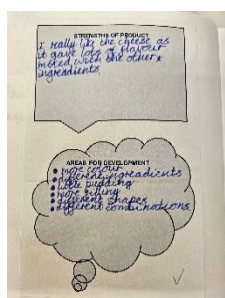 STRENGTHS OF PRODUCT
I really like the cheese as
it gave lots of flavour
mixed with the other
ingredients.
AREAS FOR DEVELOPMENT
• more colour
• different ingreadients
• pudding
• more filling
• different shapes
• different combinations